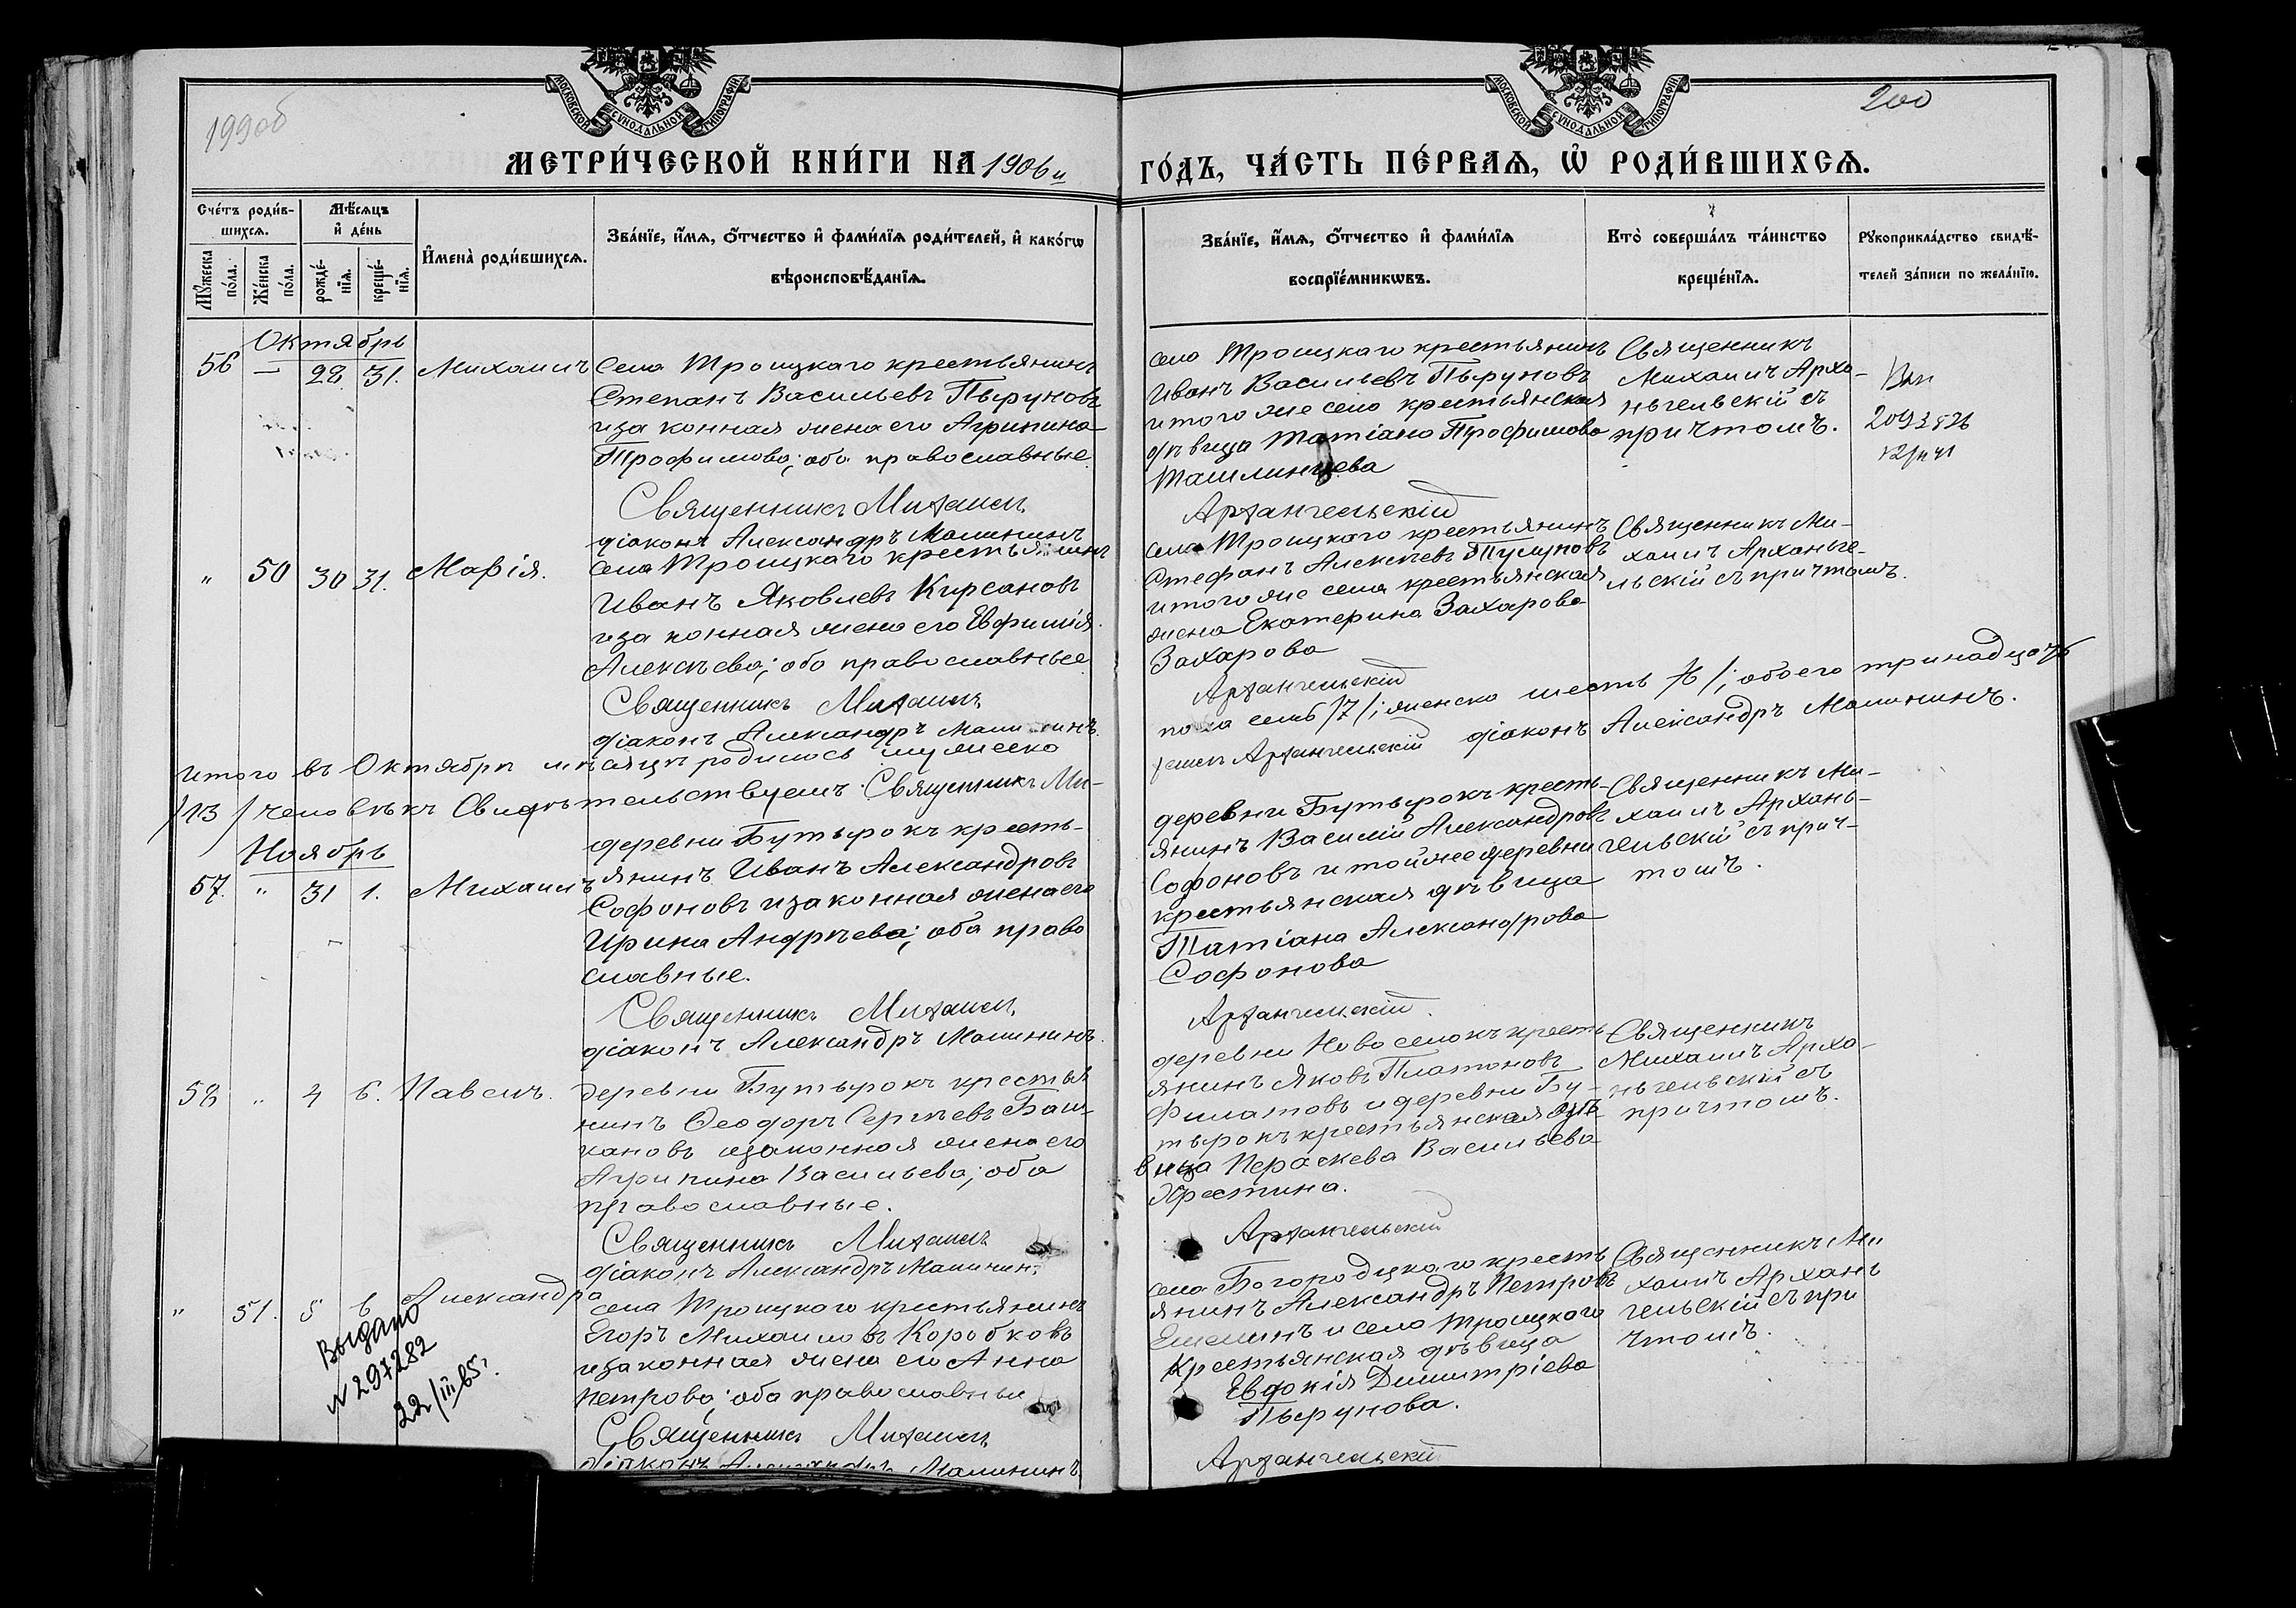 199об
200
МОСКОВСКОЙ СѴНОДАЛЬНОЙ ТИПОГРАФІИ
МОСКОВСКОЙ СѴНОДАЛЬНОЙ ТИПОГРАФІИ
МЕТРИ́ЧЕСКОЙ КНИ́ГИ НА 1906й
ГО́ДЪ, ЧА́СТЬ ПЕ́РВАѦ, Ѽ РОДИ́ВШИХСѦ.
Сче́тъ роди́в-
шихсѧ.
Мѣ́сѧцъ
и҆ де́нь
Мꙋ́жеска
по́ла.
Же́нска
по́ла.
рожде́-
нїѧ.
креще́-
нїѧ.
И҆мена̀ роди́вшихсѧ.
Зва́нїе, и҆́мѧ, ѻ҆́тчество и҆ фами́лїѧ роди́телей, и҆ како́гѡ
вѣроисповѣ́данїѧ.
Зва́нїе, и҆́мѧ, ѻ҆́тчество и҆ фами́лїѧ
воспрїе́мникѡвъ.
Кто̀ соверша́лъ та́инство
креще́нїѧ.
Рꙋкоприкла́дство свидѣ́-
телей за́писи по жела́нїю.
Октябрь
56 — 28 31. Михаилъ
Села Троицкаго крестьянинъ
Степанъ Васильевъ Пыруновъ
и законная жена его Агрипина
Трофимова; оба православные
Священникъ Михаилъ
діаконъ Александръ Малининъ
села Троицкаго крестьянинъ
Иванъ Васильевъ Пыруновъ
и того же села крестьянская
дѣвица Татіана Трофимова
Ташлинцева
Архангельскій
Священникъ
Михаилъ Арха-
нгельскій съ
причтомъ.
" 50 30 31. Марія.
Села Троицкаго крестьянинъ
Иванъ Яковлевъ Кирсановъ
и законная жена его Евфимія
Алексѣева; оба православные
Священникъ Михаилъ
діаконъ Александръ Малининъ
села Троицкаго крестьянинъ
Стефанъ Алексѣевъ
и того же села крестьянская
жена Екатерина Захарова
Захарова
Архангельскій
Священникъ Ми-
хаилъ Арханге-
льскій съ причтомъ.
Итого въ Октябрѣ мѣсяцѣ родилось мужеско
пола семь /7/; женско шесть /6/; обоего тринадцать
/13/ человѣкъ Свидѣтельствуемъ: Священникъ Ми-
хаилъ Архангельскій діаконъ Александръ Малининъ.
Ноябрь
57. " 31 1. Михаилъ
деревни Бутырокъ кресть-
янинъ Иванъ Александровъ
Софоновъ и законная жена его
Ирина Андрѣева; оба право
славные.
Священникъ Михаилъ
діаконъ Александръ Малининъ.
деревни Бутырокъ кресть-
янинъ Василій Александровъ
Софоновъ и той же деревни
крестьянская дѣвица
Татіана Александрова
Софонова
Архангельскій
Священникъ Ми-
хаилъ Архан-
гельскій съ прич-
томъ.
58 " 4 6. Павелъ.
деревни Бутырокъ крестья
нинъ Ѳеодоръ Сергѣевъ Баш-
кановъ и законная жена его
Агрипина Васильева; оба
православные.
Священникъ Михаилъ
діаконъ Александръ Малининъ
деревни Новоселокъ кресть
янинъ Яковъ Платоновъ
Филатовъ и деревни Бу-
тырокъ крестьянская дѣ-
вица Параскева Васильева
Архангельскій
Священникъ
Михаилъ Арха-
нгельскій съ
причтомъ.
" 51. 5 6 Александра
села Троицкаго крестьянинъ
Егоръ Михаиловъ Коробковъ
и законная жена его Анна
Петрова; оба православные
Священникъ Михаилъ
діаконъ Александръ Малининъ
села Богородцкаго кресть
янинъ Александръ Петровъ
и села Троицкаго
крестьянская дѣвица
Евдокія Димитріева
Пырунова.
Архангельскій
Священникъ Ми
хаилъ Архан
гельскій съ при
чтомъ.
Выдано
N 297282
22/III 65г.